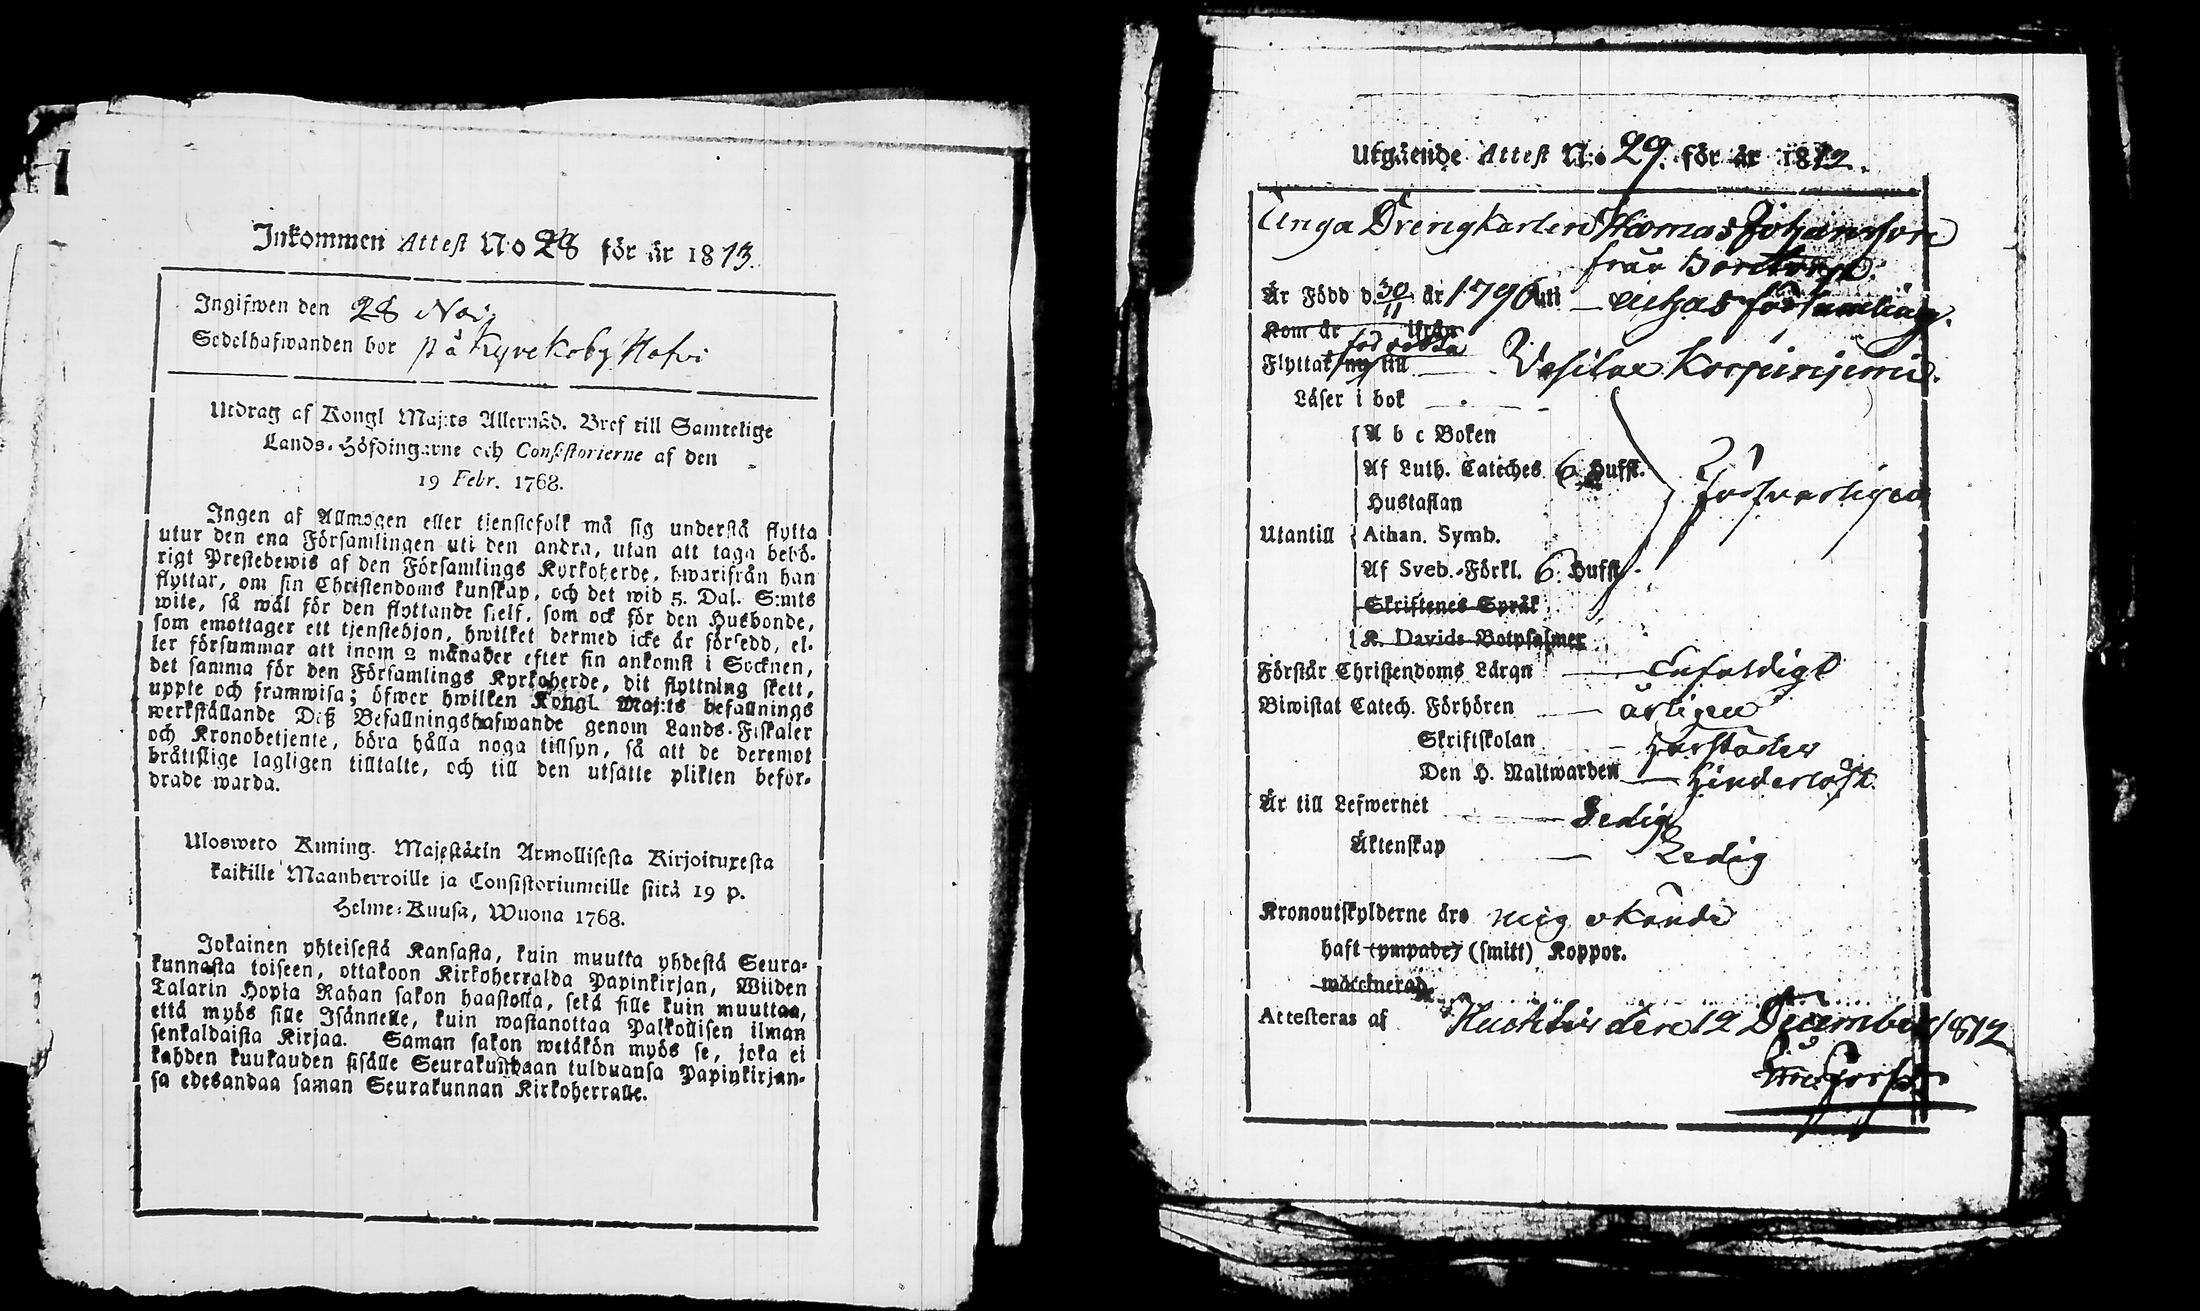 Inkommen Attest No 28 för år 1813.
Ingifwen den 28 Nov.
Sedelhafwanden bor på Kyrckoby Hofvi
Utdrag af Kongl Maj:ts Allernåd. Bref till Samtelige
Lands-Höfdingarne och Consistorierne af den
19 Febr. 1768.
Ingen af Allmogen eller tjenstefolk må sig understå flytta
utur den ena Församlingen uti den andra, utan att taga behö-
rigt Prestebewis af den Församlings Kyrkoherde, hwarifrån han
flyttar, om sin Christendoms kunskap, och det wid 5. Dal. S:mts
wite, så wäl för den flyttande sielf, som ock för den Husbonde,
som emottager ett tjenstehjon, hwilket dermed icke är försedd, el-
ler försummar att inom 2 månader efter sin ankomst i Socknen,
det samma för den Församlings Kyrkoherde, dit flyttning skett,
uppte och framwisa; öfwer hwilken Kongl. Maj:ts befallnings
werkställande Deß Befallningshafwande genom Lands-Fiskaler
och Kronobetjente, böra hålla noga tillsyn, så att de deremot
bråttslige lagligen tilltalte, och till den utsatte plikten befor-
drade warda.
Ulosweto Kuning. Majestätin Armollisesta Kirjoituxesta
kaikille Maanherroille ja Consistoriumeille siitä 19 p.
Helme-Kuusa, Wuona 1768.
Jokainen yhteisestä Kansasta, kuin muutta yhdestä Seura-
kunnasta toiseen, ottakoon Kirkoherralda Papinkirjan, Wiiden
Talarin Hopia Rahan sakon haastolla, sekä sille kuin muuttaa,
että myös sille Isännelle, kuin wastanottaa Palkollisen ilman
senkaldaista Kirjaa. Saman sakon wetäkön myös se, joka ei
kahden kuukauden sisälle Seurakundaan tulduansa Papinkirjan-
sa edesandaa saman Seurakunnan Kirkoherralle.
Utgående Attest N:o 29. för år 1812.
Unga Drengkarlen Thomas Johansson
från
Är Född d 30/11 år 1796 uti församling.
Kom år ifrån
Flyttat nu till Vesilax Korpiniemi.
Läser i bok
A b c Boken
Af Luth. Cateches 6 Hufst.
Hustaflan
Försvarligen
Utantill Athan. Symb.
Af Sveb.-Förkl. 6. Hufst.
Skriftenes Språk
K. Davids Botpsalmer
Förstår Christendoms Läran Enfaldigt
Biwistat Catech. Förhören årligen
Skriftskolan
Den H. Nattwarden Hinderlöst.
Är till Lefwernet
Äktenskap Ledig
Kronoutskylderne äro mig okände
haft (ympade) (smitt) Koppor.
waccinerad
Attesteras af den 12 December 1812